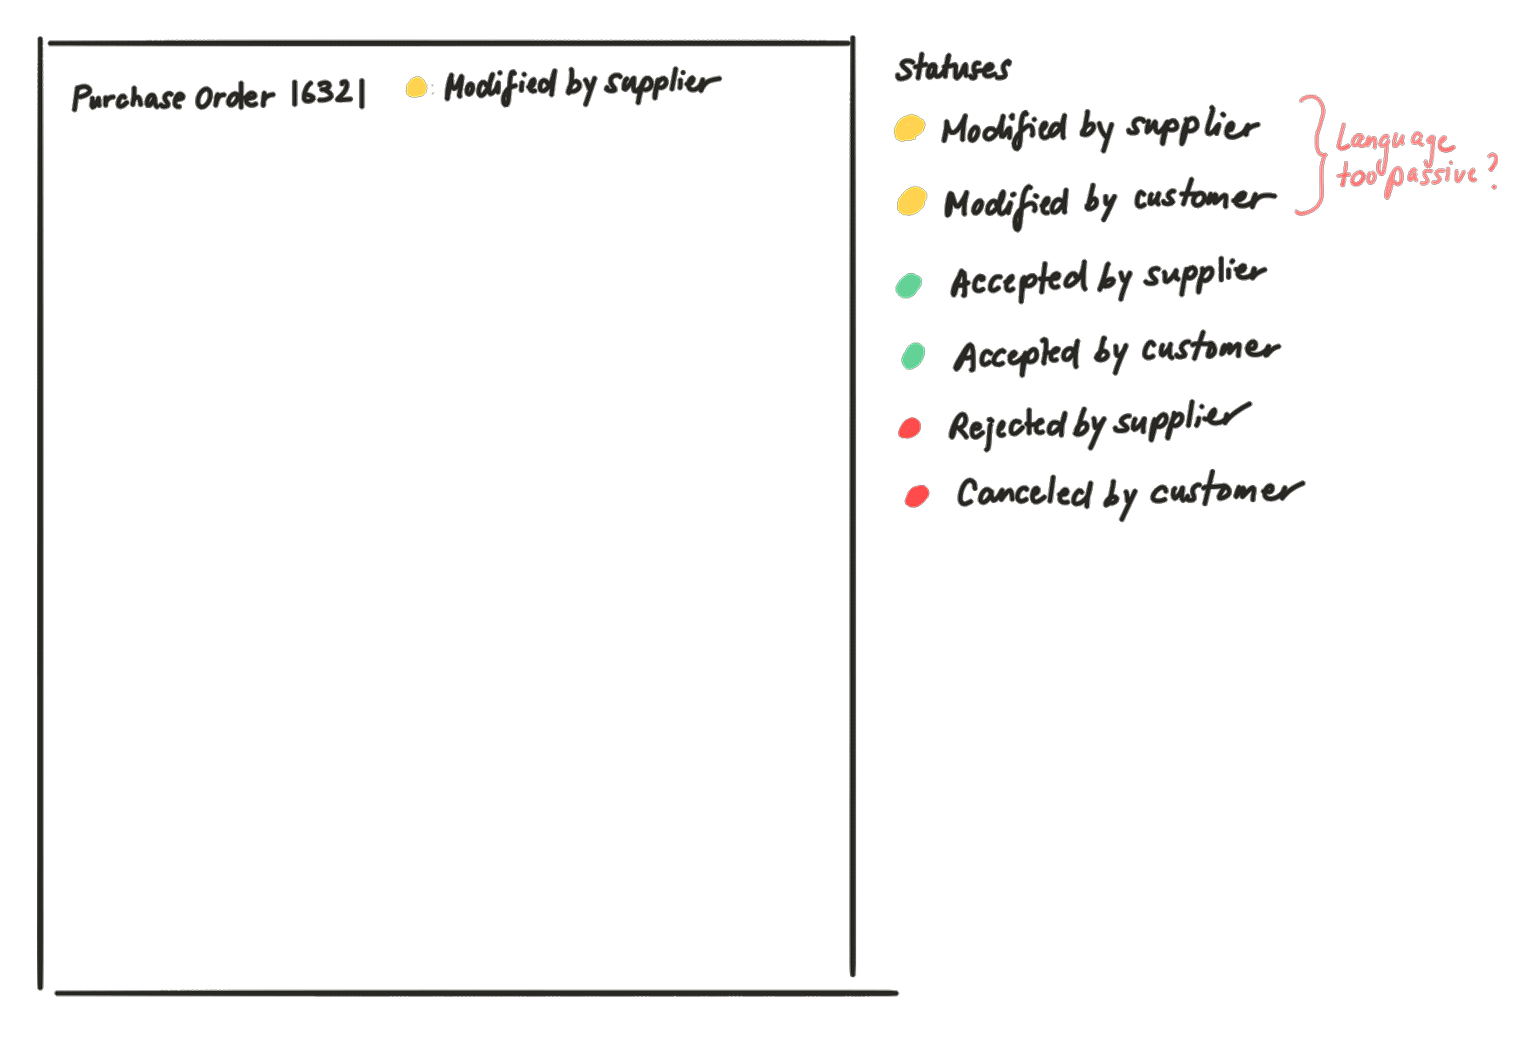 Purchase Order 16321
Modified by supplier
Statuses
Modified by supplier
Modified by customer
Language
too passive?
Accepted by supplier
Accepted by customer
Rejected by supplier
Canceled by customer